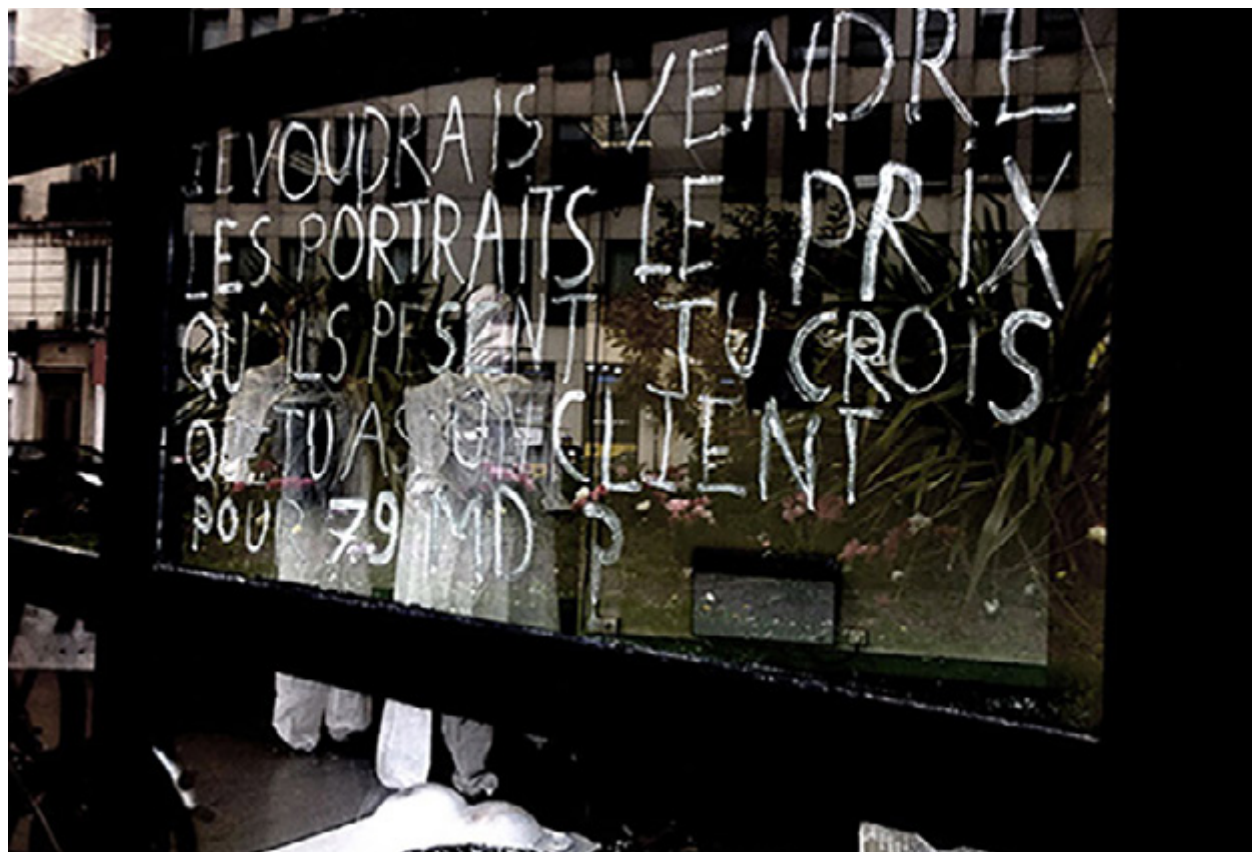 JE VOUDRAIS VENDRE
LES PORTRAITS LE PRIX
QU'ILS PESENT TU CROIS
QUE TU AS UN CLIENT
POUR 79 MD P